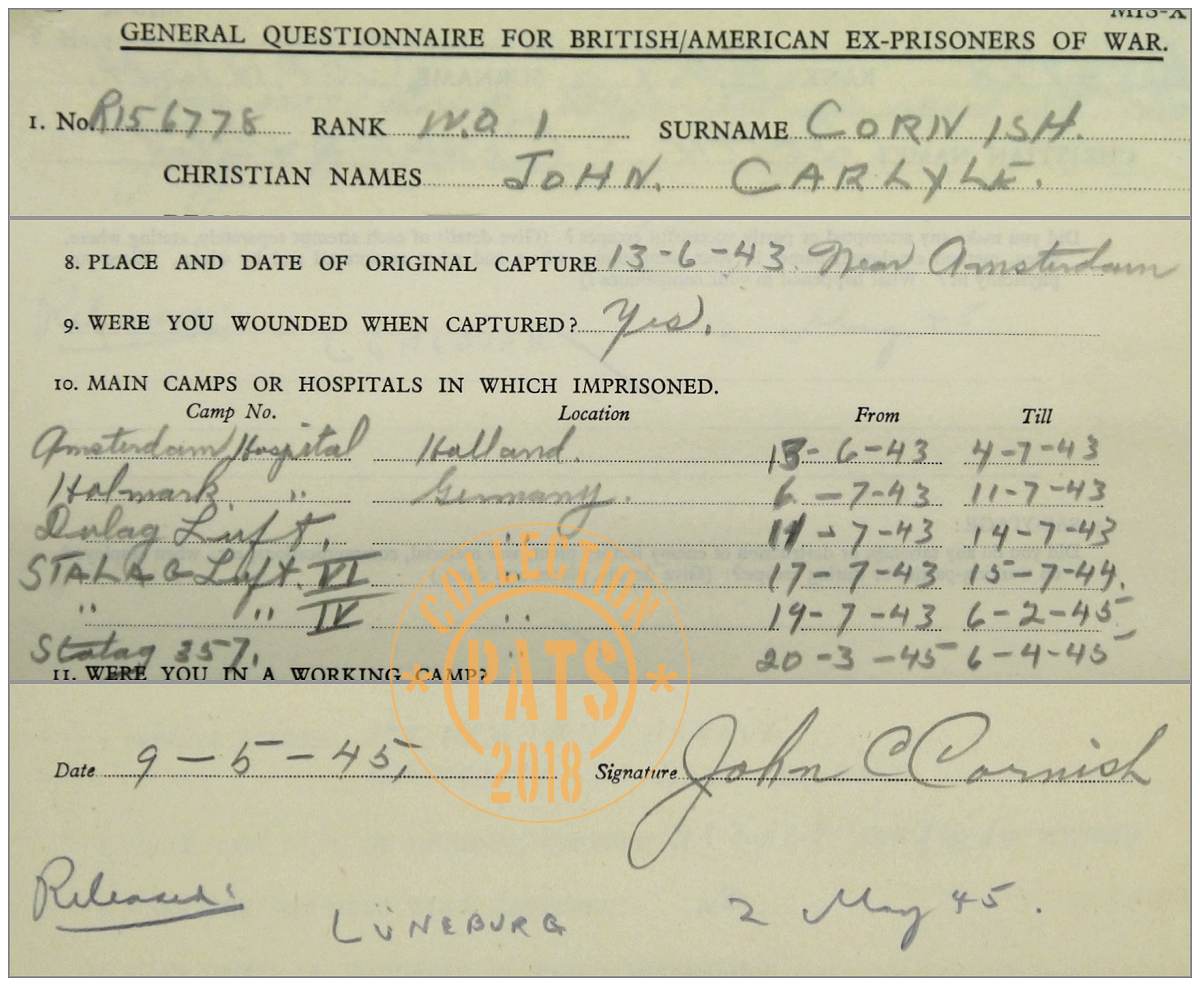 MIS-X
GENERAL QUESTIONNAIRE FOR BRITISH/AMERICAN EX-PRISONERS OF WAR.
1. No. R156778 RANK W.O 1 SURNAME CORNISH.
CHRISTIAN NAMES JOHN. CARLYLE.
8. PLACE AND DATE OF ORIGINAL CAPTURE 13-6-43. Near Amsterdam
9. WERE YOU WOUNDED WHEN CAPTURED? Yes.
10. MAIN CAMPS OR HOSPITALS IN WHICH IMPRISONED.
Camp No. Location From Till
Amsterdam Hospital Holland. 13-6-43 4-7-43
Holmark " Germany. 6-7-43 11-7-43
Dulag Luft. " 11-7-43 14-7-43
STALAG Luft. VI " 17-7-43 15-7-44.
" " IV " 19-7-43 6-2-45
Stalag 357. " 20-3-45 6-4-45
11. WERE YOU IN A WORKING CAMP?
COLLECTION
* PATS *
2018
Date 9-5-45, Signature John C Cornish
Released:
LÜNEBURG 2 May 45.